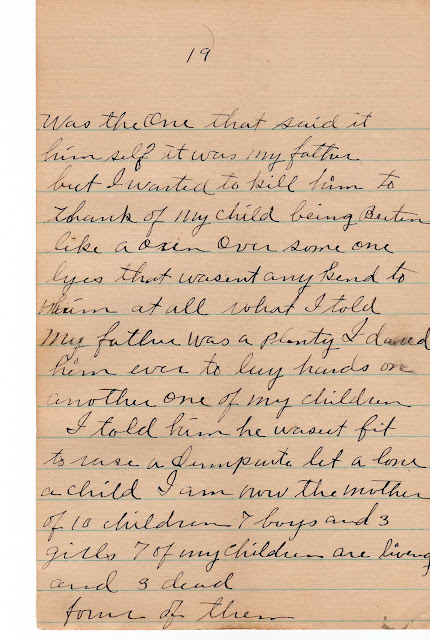 19
Was the One that said it
him self it was my father
but I wanted to kill him to
thank of my child being Beten
like a oxen over some one
lyes that wasent any kend to
him at all what I told
my father was a planty I dared
him ever to lay hands on
another one of my children
I told him he wasent fit
to rase a let a lone
a child I am now the mother
of 10 children 7 boys and 3
girls 7 of my children are living
and 3 dead
four of them